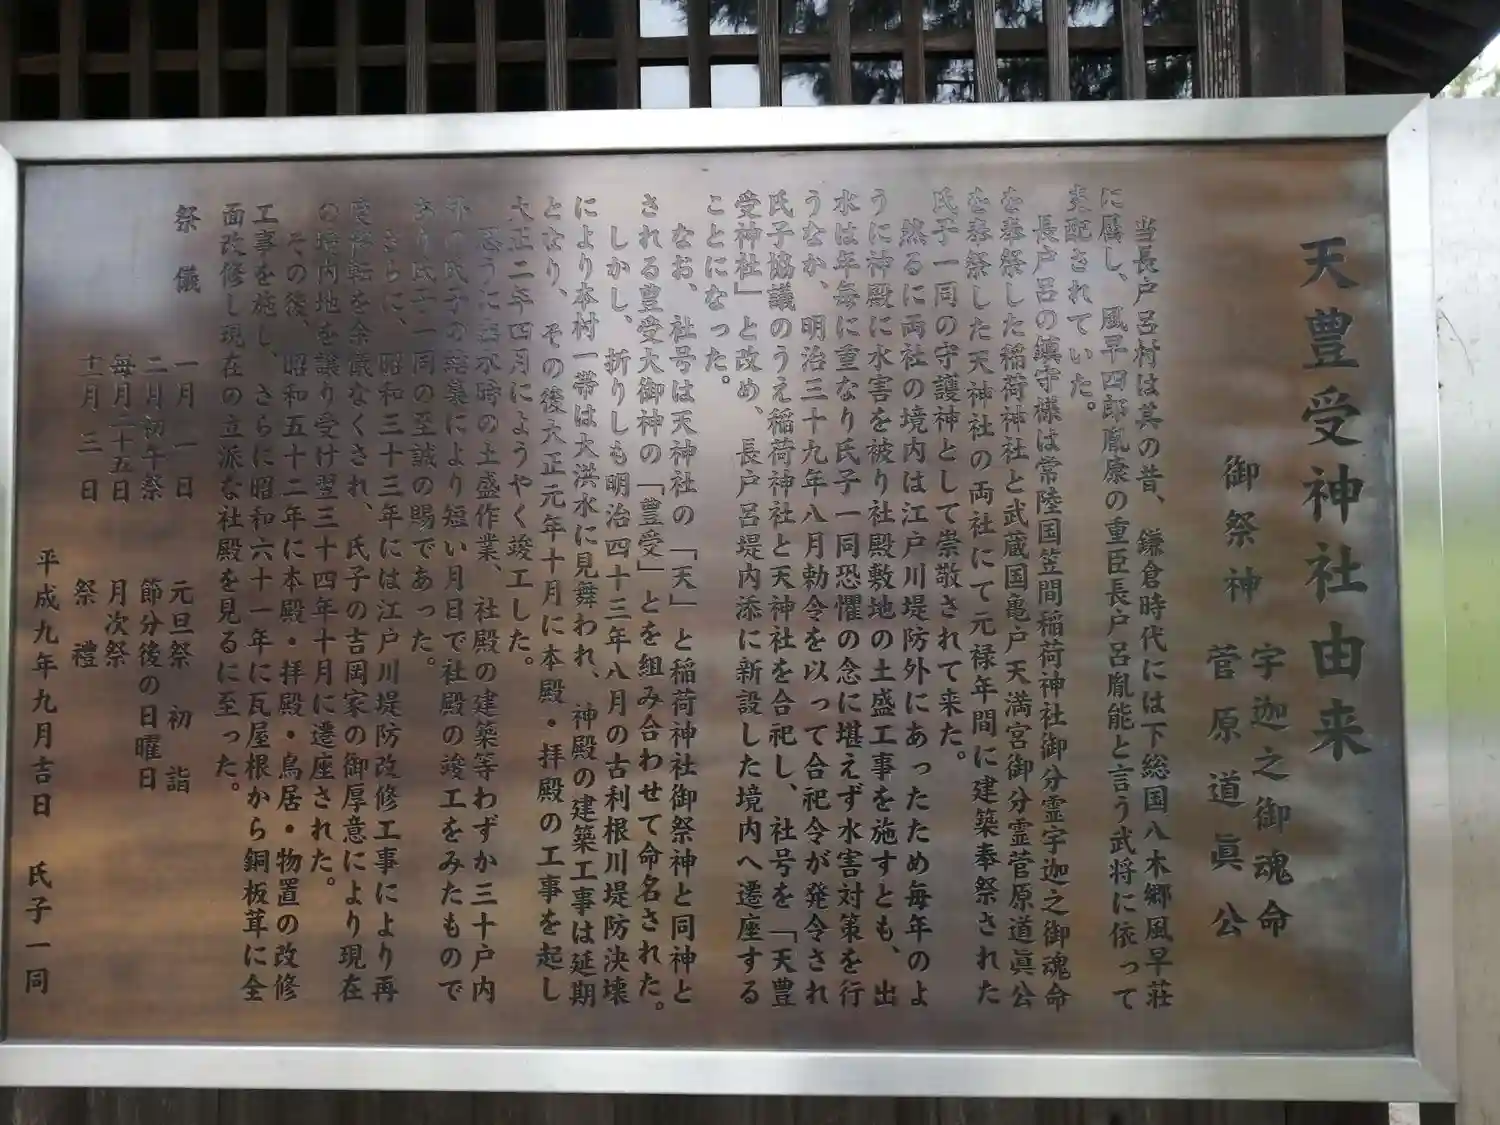 天豊受神社由来
御祭神 宇迦之御魂命
菅原道眞公
当長戸呂村は其の昔、鎌倉時代には下総国八木郷風早荘
に属し、風早四郎胤康の重臣長戸呂胤能と言う武将に依って
支配されていた。
長戸呂の鎮守様は常陸国笠間稲荷神社御分霊宇迦之御魂命
を奉祭した稲荷神社と武蔵国亀戸天満宮御分霊菅原道眞公
を奉祭した天神社の両社にて元禄年間に建築奉祭された
氏子一同の守護神として崇敬されて来た。
然るに両社の境内は江戸川堤防外にあったため毎年のよ
うに神殿に水害を被り社殿敷地の土盛工事を施すとも、出
水は年毎に重なり氏子一同恐懼の念に堪えず水害対策を行
うなか、明治三十九年八月勅令を以って合祀令が発令され
氏子協議のうえ稲荷神社と天神社を合祀し、社号を「天豊
受神社」と改め、長戸呂堤内添に新設した境内へ遷座する
ことになった。
なお、社号は天神社の「天」と稲荷神社御祭神と同神と
される豊受大御神の「豊受」とを組み合わせて命名された。
しかし、折りしも明治四十三年八月の古利根川堤防決壊
により本村一帯は大洪水に見舞われ、神殿の建築工事は延期
となり、その後大正元年十月に本殿・拝殿の工事を起し
大正二年四月にようやく竣工した。
思うに出水時の土盛作業、社殿の建築等わずか三十戸内
外の氏子の結集により短い月日で社殿の竣工をみたもので
あり氏子一同の至誠の賜であった。
さらに、昭和三十三年には江戸川堤防改修工事により再
度移転を余儀なくされ、氏子の吉岡家の御厚意により現在
の境内地を譲り受け翌三十四年十月に遷座された。
その後、昭和五十二年に本殿・拝殿・鳥居・物置の改修
工事を施し、さらに昭和六十一年に瓦屋根から銅板茸に全
面改修し現在の立派な社殿を見るに至った。
祭儀
一月一日 元旦祭 初詣
二月初午祭 節分後の日曜日
毎月二十五日 月次祭
十一月三日 祭禮
平成九年九月吉日 氏子一同